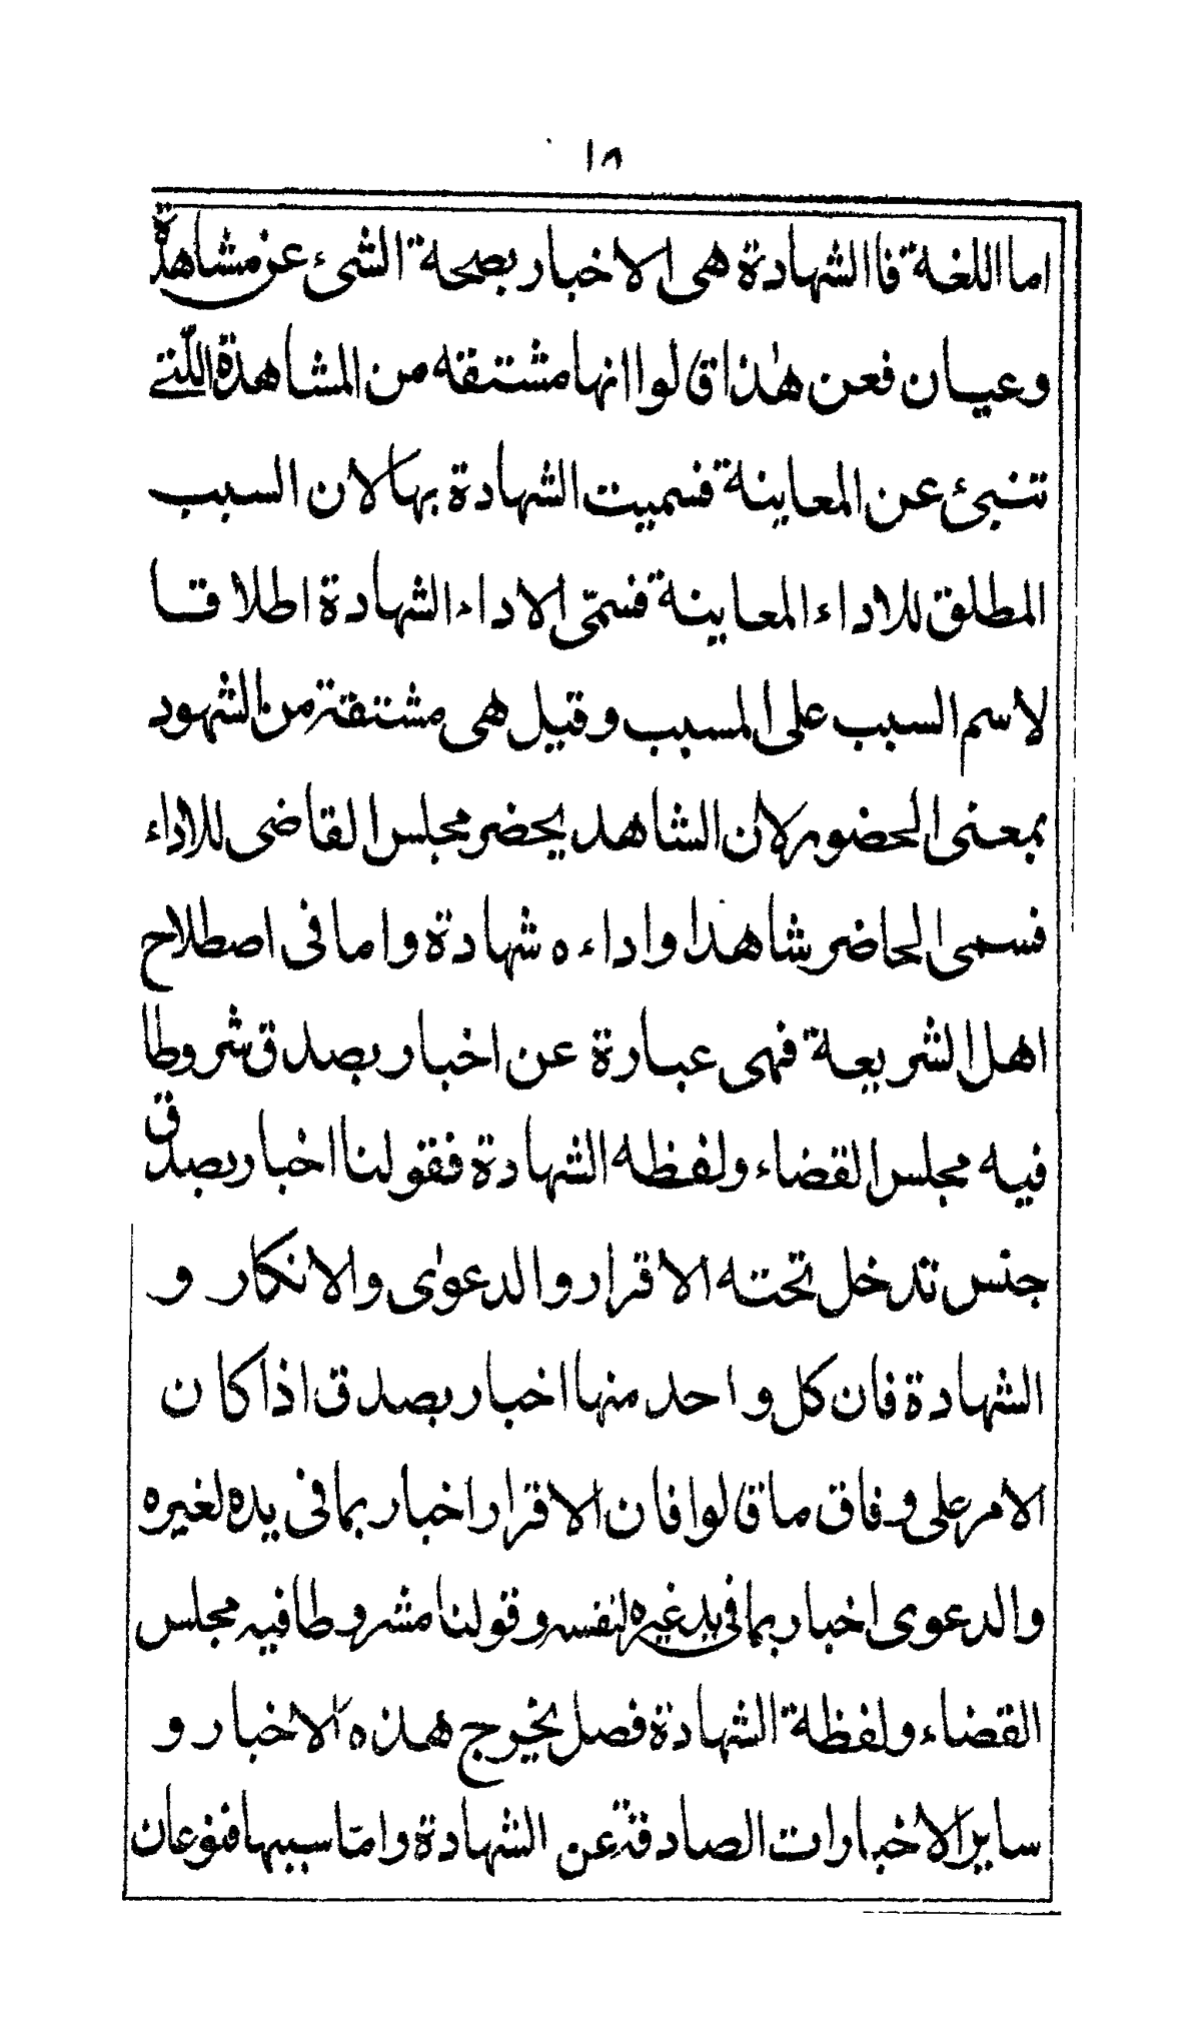 ١٨
اما اللغة فاالشهادة هى الاخبار بصحة الشىء عن مشاهدة
وعيان فعن هٰذا قالوا انها مشتقه من المشاهدة اللّتے
تنبئ عن المعاينة فسميت الشهادة بها لان السبب
المطلق للاداء المعاينة فسمّى الاداء الشهادة اطلاقا
لاسم السبب على المسبب وقيل هى مشتقة من الشهود
بمعنى الحضور لان الشاهد يحضر مجلس القاضى للاداء
فسمى الحاضر شاهدا واداءه شهادة واما فى اصطلاح
اهل الشريعة فهى عبارة عن اخبار بصدق شروطا
فيه مجلس القضاء ولفظه الشهادة فقولنا اخبار بصدق
جنس تدخل تحته الاقرار والدعوٰى والانكار و
الشهادة فان كل واحد منها اخبار بصدق اذا كان
الامر على وفاق ما قالوا فان الاقرار اخبار بما فى يده لغيره
والدعوى اخبار بما فى يد غيره لنفسه وقولنا مشروطا فيه مجلس
القضاء ولفظة الشهادة فصل يخرج هذه الاخبار و
ساير الاخبارات الصادقة عن الشهادة وامّا سببها فنوعان